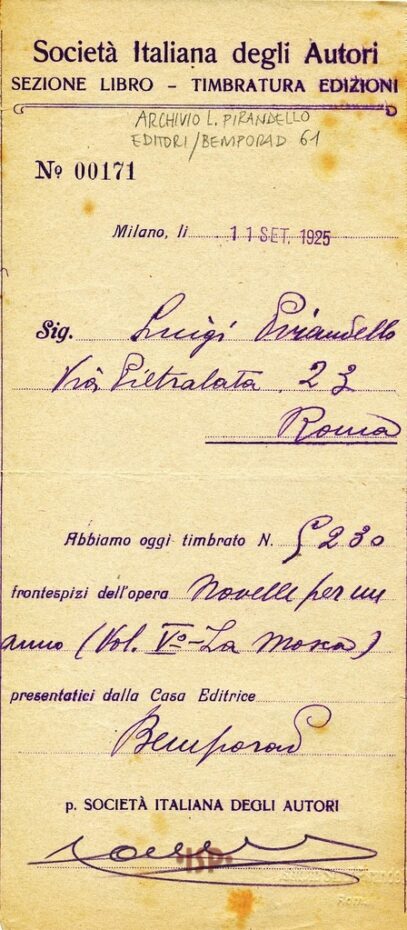 Società Italiana degli Autori
SEZIONE LIBRO – TIMBRATURA EDIZIONI
ARCHIVIO L. PIRANDELLO
EDITORI/BEMPORAD 61
Nº 00171
Milano, li 11 SET. 1925
Sig. Luigi Pirandello
Via Pietralata 23
Roma
Abbiamo oggi timbrato N. 5230
frontespizi dell'opera Novelle per un
anno (Vol. Vº - La Mosca)
presentatici dalla Casa Editrice
Bemporad
p. SOCIETÀ ITALIANA DEGLI AUTORI
•KSP•